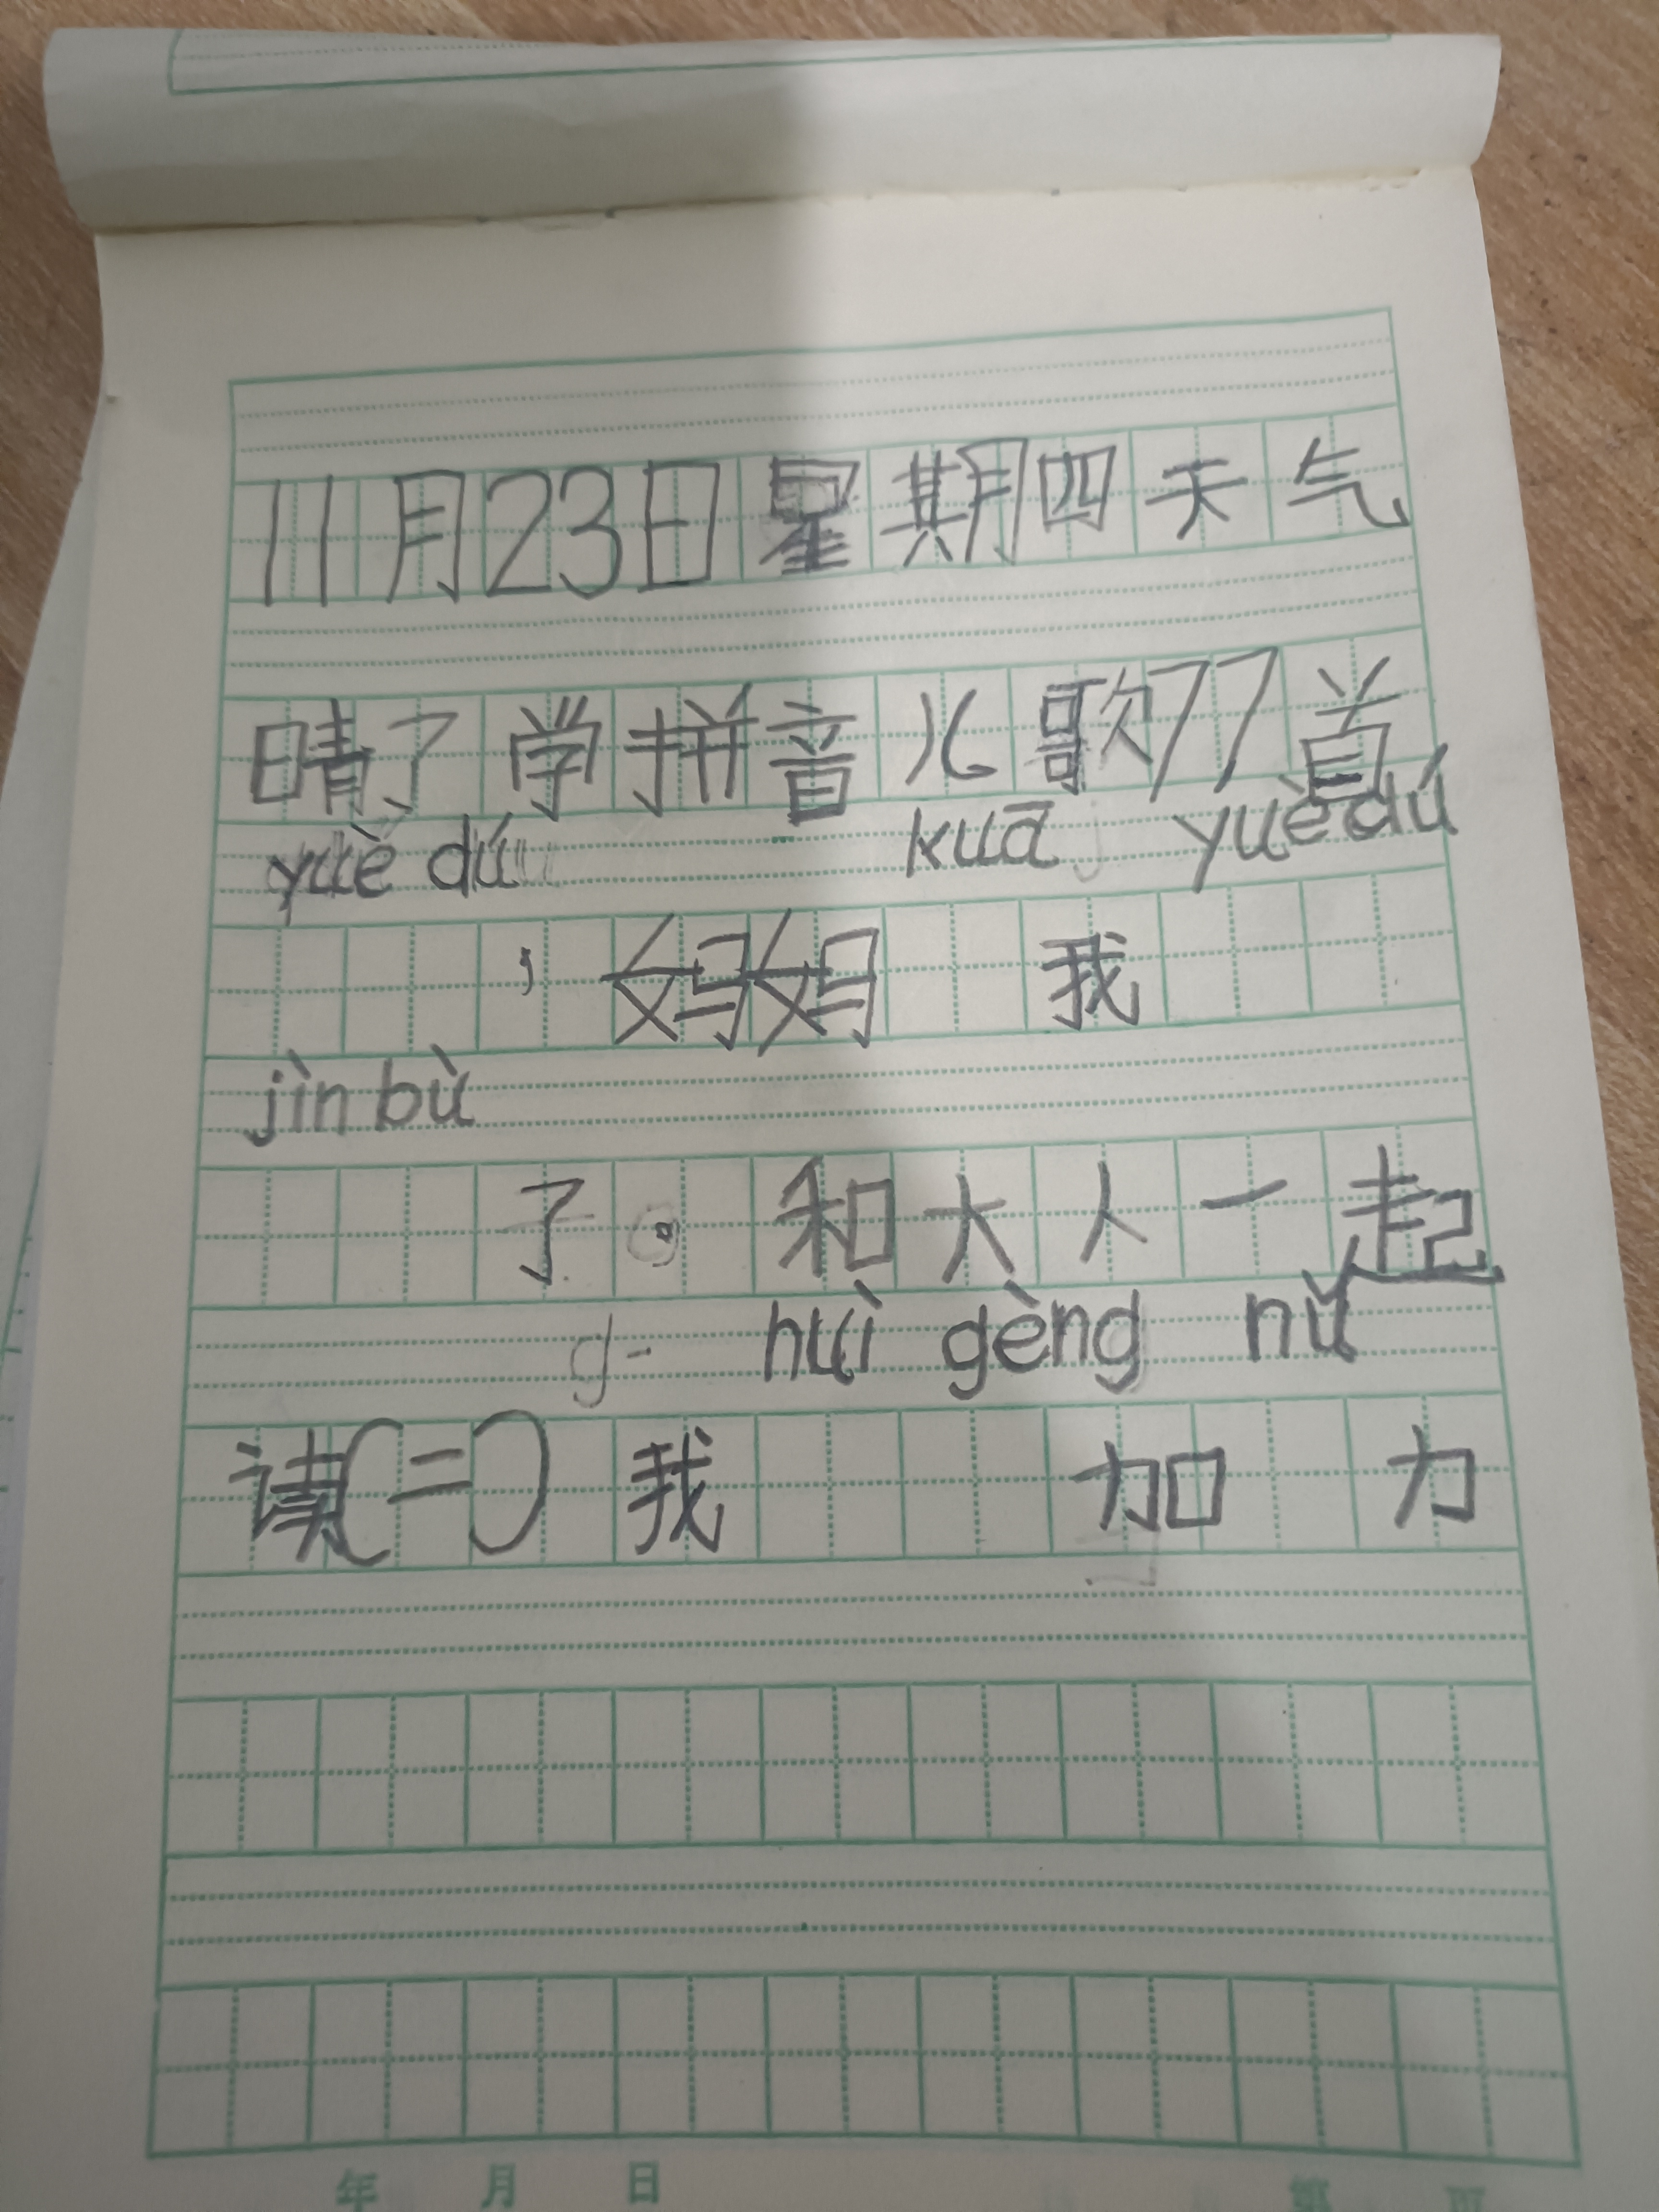 11月23日星期四天气
晴了学拼音儿歌77首
yuè dú kuā yuè dú
，妈妈 我
jìn bù
了。和大人一起
hùi gèng nǔ
读(二)我 加 力
年 月 日 第 页